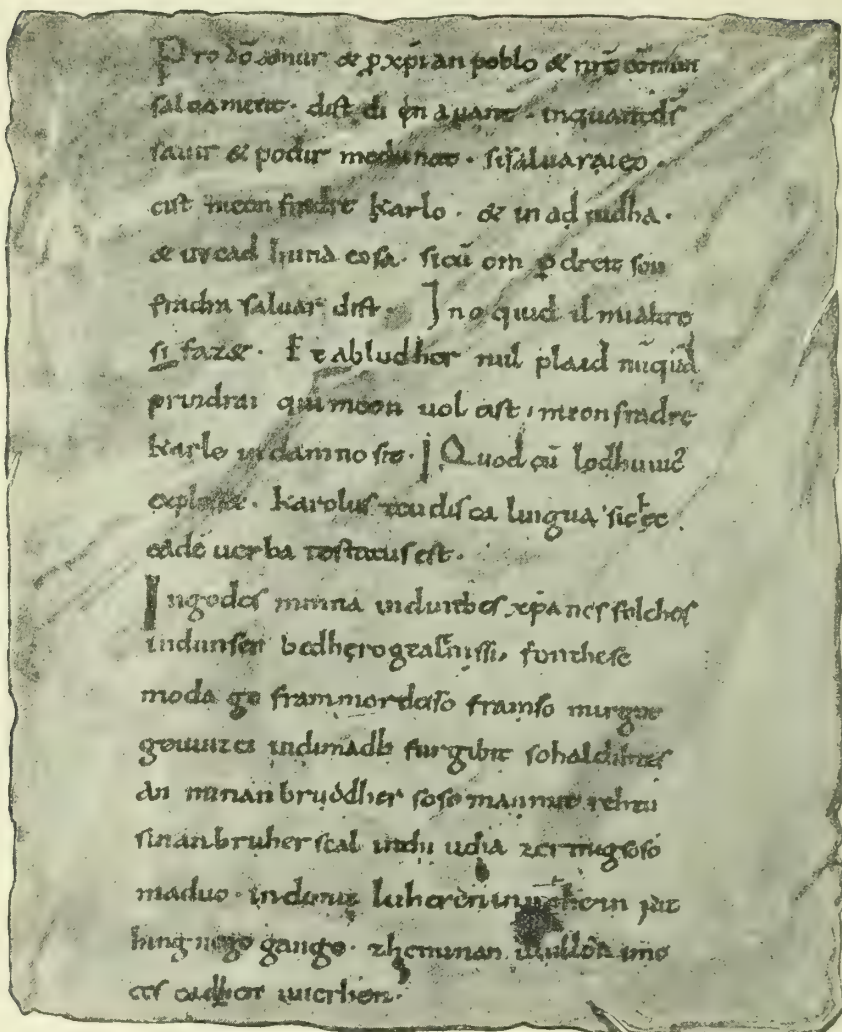 Pro dō amur & p xp̄ian poblo & nr̄o cōmun
saluament. dist di en auant. inquantd̄s
sauir & podir medunat. sisaluaraieo.
cist meon fradre karlo. & in ad iudha.
& in cad huna cosa. sicū om p dreit son
fradra saluar dist. Ino quid il mialtre
si faz&. Et abludher nul plaid nūquā
prindrai qui meon uol cist, meonfradre
karle in damno sit. Quod cū lodhuuic̄
explesset. karolus teudisca lingua sic hec
eadē uerba testatus est.
Ingodes minna induinthes xp̄anes folches
indunser bedhero gealtnissi, fonthese
moda ge frammordesso framso mirgot
geuuizci indimadh furgibit sohaldihtes
an minan bruodher soso manmit rehtu
sinanbruher scal inthi utha zermigsoso
maduo. indimit luheren in nohein iut
hing nege gango. zheminan uuillon imo
ces cadhen uuerhen.